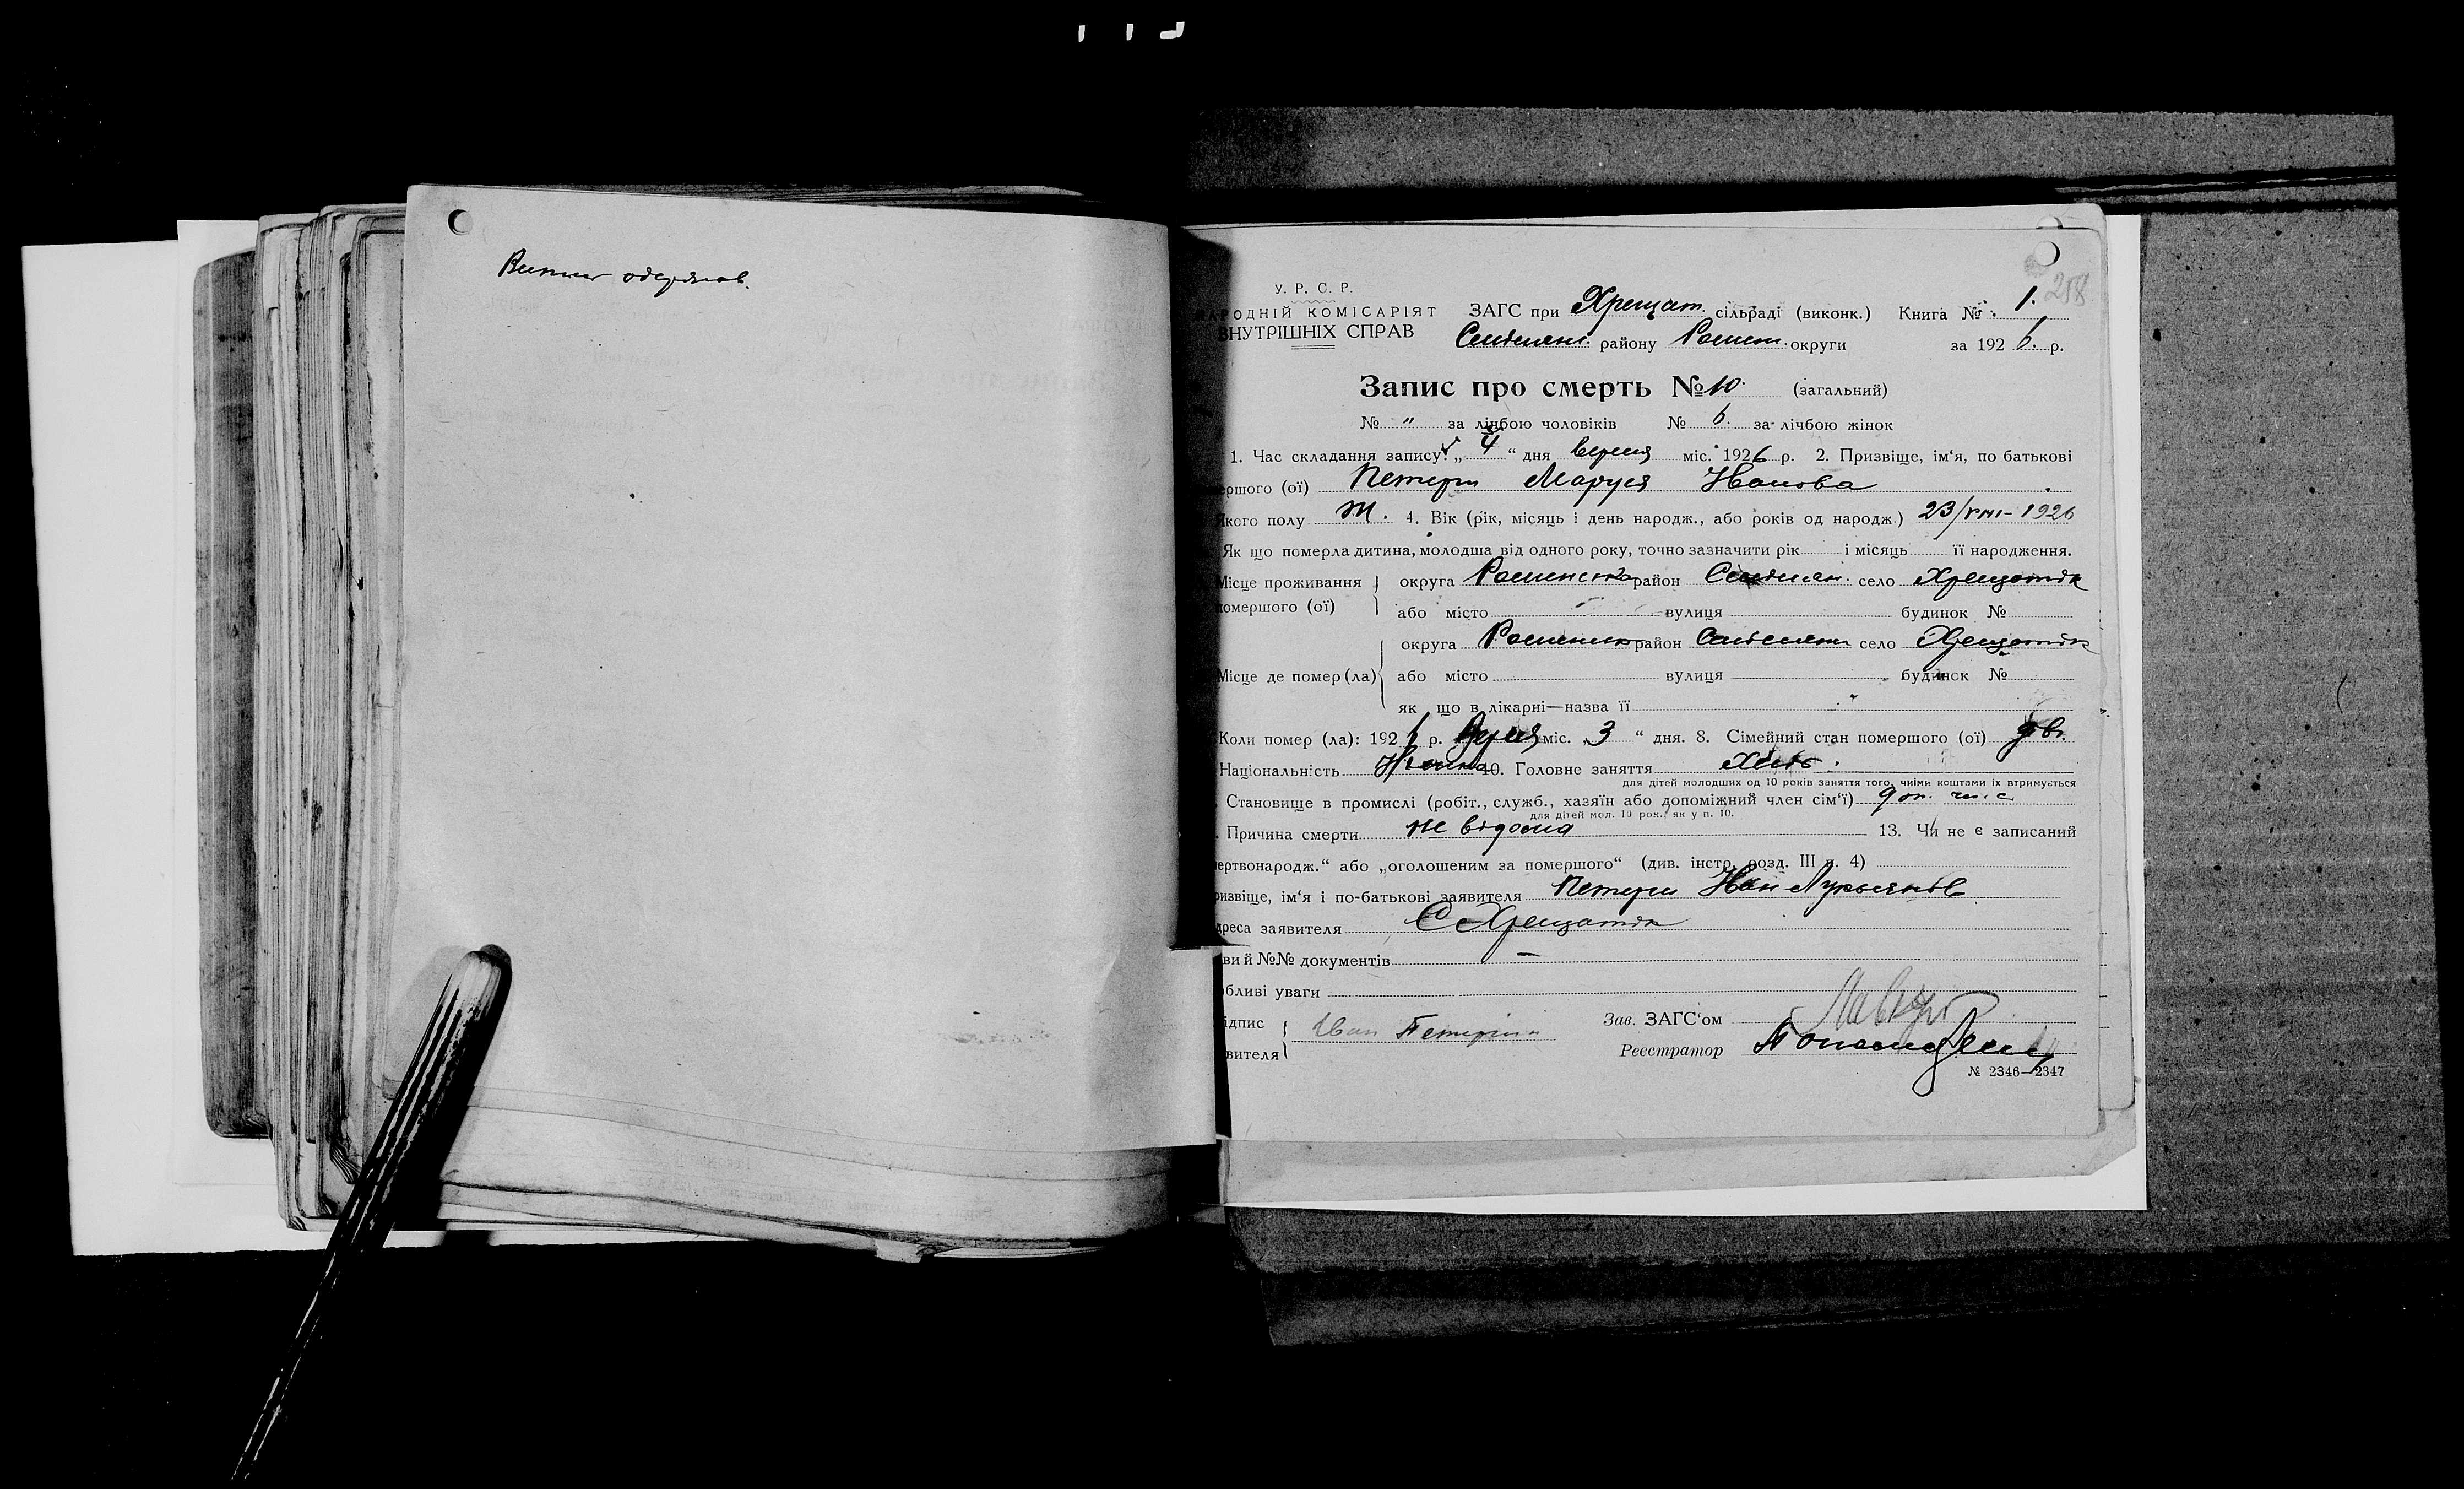 Випис одержав.
У. Р. С. Р.
АРОДНІЙ КОМІСАРІЯТ
ВНУТРІШНІХ СПРАВ
ЗАГС при Хрещат. сільраді (виконк.) Книга № 1. 258
району Ромен. округи за 192 6. р.
Запис про смерть № 10. (загальний)
№ " за лічбою чоловіків № 6. за лічбою жінок
1. Час складання запису: „ 4 “ дня вересня міс. 1926 р. 2. Призвіще, ім‘я, по батькові
ершого (ої) Петери Маруся Іванова
Якого полу Ж. 4. Вік (рік, місяць і день народж., або років од народж.) 23/VIII-1926
Як що померла дитина, молодша від одного року, точно зазначити рік і місяць її народження.
Місце проживання округа Роменська район село Хрещатік
омершого (ої) або місто вулиця будинок №
округа Роменськ район село Хрещатік
Місце де помер (ла) або місто вулиця будинок №
як що в лікарні—назва її
Коли помер (ла): 192 6 р. Вересня міс. „ 3 “ дня. 8. Сімейний стан помершого (ої) дів.
Національність 10. Головне заняття Хліб.
для дітей молодших од 10 років заняття того, чиїми коштами їх втримується
. Становище в промислі (робіт., служб., хазяїн або допоміжний член сім‘ї) доп. чл. с
для дітей мол. 10 рок., як у п. 10.
. Причина смерти не відома 13. Чи не є записаний
ертвонародж.“ або „оголошеним за помершого“ (див. інстр. розд. III п. 4)
ризвіще, ім‘я і по-батькові заявителя Петери Іван Лукьянов
дреса заявителя С Хрещатік
ви й №№ документів —
бливі уваги
ідпис Іван Петеріин Зав. ЗАГС‘ом
вителя Реєстратор
№ 2346—2347